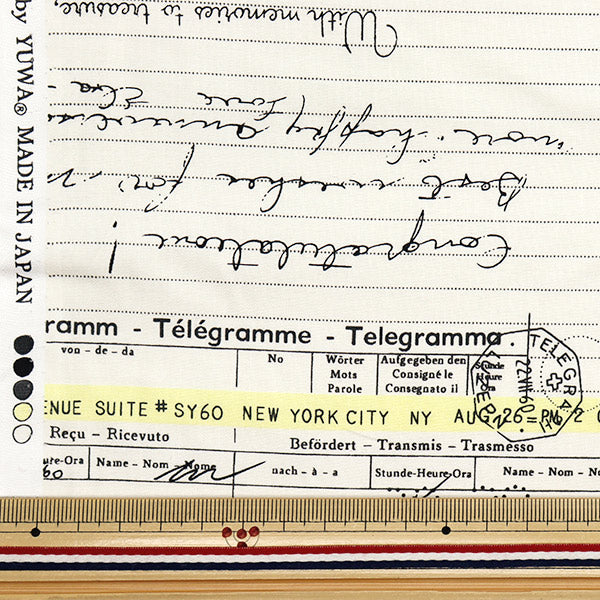 With memories to treasure,
Love Elsa
more happy
Best wishes for
Congratulations!
by YUWA® MADE IN JAPAN
ramm - Télégramme - Telegramma.
von - de - da
No
Wörter
Mots
Parole
Aufgegeben den
Consigné le
Consegnato il
Stunde
Heure
Ora
TELEGRAPH
LUZERN
22.VIII60
ENUE SUITE # SY60 NEW YORK CITY NY AUG 26 = PM 2
Reçu - Ricevuto
Befördert - Transmis - Trasmesso
ure-Ora
Name - Nom - Nome
nach - à - a
Stunde-Heure-Ora
Name - Nom - Nom